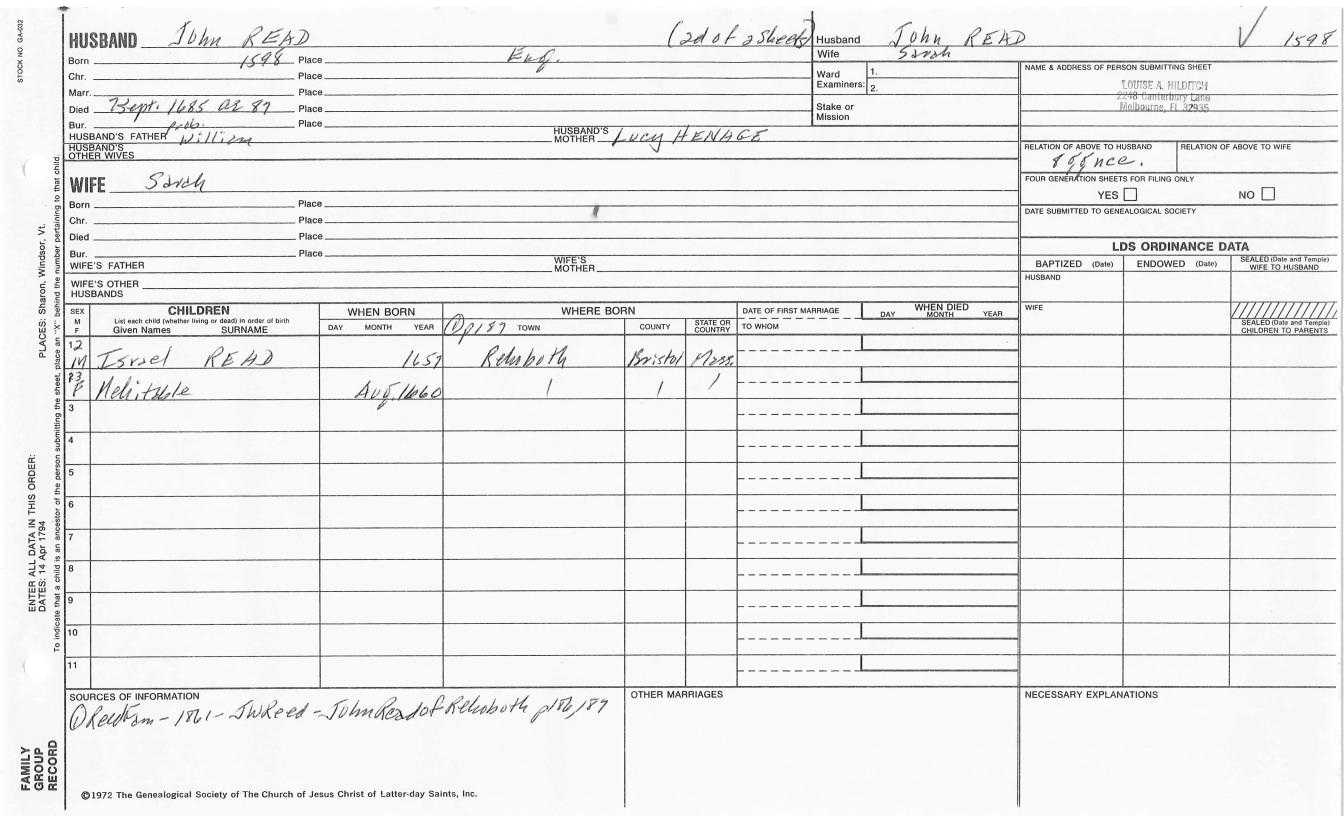 STOCK NO. GA-032
HUSBAND John READ (2d of 2 sheets)
Born 1598 Place Eng.
Chr. Place
Marr. Place
Died Sept. 1685 ae 87 Place
Bur. Place
HUSBAND'S FATHER prob. William HUSBAND'S MOTHER Lucy HENAGE
HUSBAND'S OTHER WIVES
WIFE Sarah
Born Place
Chr. Place
Died Place
Bur. Place
WIFE'S FATHER WIFE'S MOTHER
WIFE'S OTHER HUSBANDS
Husband John READ √ 1598
Wife Sarah
Ward Examiners: 1.
2.
Stake or Mission
NAME & ADDRESS OF PERSON SUBMITTING SHEET
LOUISE A. HILDITCH
2248 Canterbury Lane
Melbourne, FL 32935
RELATION OF ABOVE TO HUSBAND RELATION OF ABOVE TO WIFE
8ggnce.
FOUR GENERATION SHEETS FOR FILING ONLY
YES NO
DATE SUBMITTED TO GENEALOGICAL SOCIETY
LDS ORDINANCE DATA
BAPTIZED (Date) ENDOWED (Date) SEALED (Date and Temple) WIFE TO HUSBAND
HUSBAND
WIFE
SEALED (Date and Temple) CHILDREN TO PARENTS
SEX M F
CHILDREN
List each child (whether living or dead) in order of birth
Given Names SURNAME
WHEN BORN
DAY MONTH YEAR
WHERE BORN
① p187 TOWN COUNTY STATE OR COUNTRY
DATE OF FIRST MARRIAGE
TO WHOM
WHEN DIED
DAY MONTH YEAR
12 M Israel READ 1657 Rehoboth Bristol Mass.
13 F Mehitable Aug. 1660 / / /
3
4
5
6
7
8
9
10
11
SOURCES OF INFORMATION
① Reed Fam - 1861 - JW Reed - John Read of Rehoboth p186, 187
OTHER MARRIAGES
NECESSARY EXPLANATIONS
©1972 The Genealogical Society of The Church of Jesus Christ of Latter-day Saints, Inc.
FAMILY GROUP RECORD
ENTER ALL DATA IN THIS ORDER:
DATES: 14 Apr 1794 PLACES: Sharon, Windsor, Vt.
To indicate that a child is an ancestor of the person submitting the sheet, place an "X" behind the number pertaining to that child.